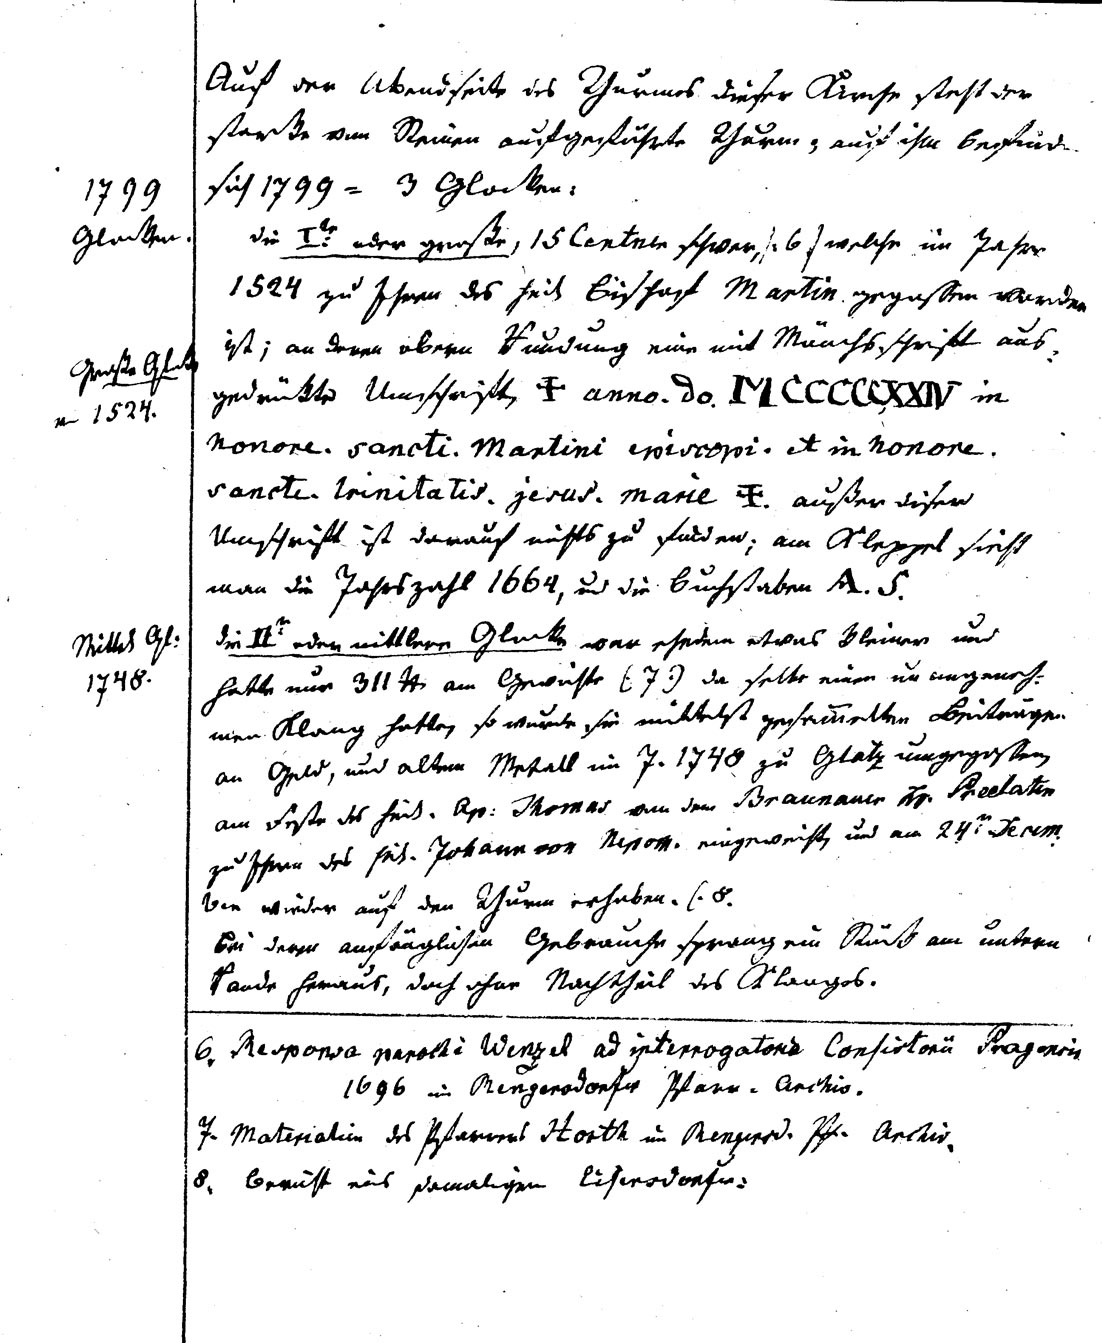 Auf der Abendseite des Thurmes dieser Kirche steht der
starke von Steinen aufgeführte Thurm; auf ihm befind-
1799
sich 1799 = 3 Glocken:
Glocken.
die Ite oder große, 15 Centner schwer, /:6/ welche im Jahr
1524 zu Ehren des heil. Bischof Martin gegossen worden
Große Glocke
ist; an deren obern Rundung eine mit Mönchsschrift aus-
1524.
gedrückte Umschrift, ☩ anno. do. MCCCCCXXIV in
honore. sancti. Martini episcopi. et in honore.
sancte. trinitatis. jesus. marie ☩. außer dieser
Umschrift ist darauf nichts zu finden; am Kleppel sieht
man die Jahrszahl 1664, und die Buchstaben A. S.
Mittel Gl:
die IIte oder mittlere Glocke war ehedem etwas kleiner und
1748.
hatte nur 311 ℔ am Gewichte (:7:) da selbe einen unangeneh-
men Klang hatte, so wurde sie mittelst gesam̅elten Beiträgen
an Geld, und altem Metall im J. 1748 zu Glatz umgegossen,
am Feste des heil. Ap: Thomas von dem Braunauer Hr. Prelaten
zu Ehren des heil. Johann von Nepom. eingeweiht, und am 24ten Decem-
ber wieder auf den Thurm erhoben. (:8.
bei deren anfänglichen Gebrauche sprang ein Stück am untern
Rande heraus, doch ohne Nachtheil des Klanges.
6. Responsa parochi Wenzel ad interrogatoria Consistorii Pragensis
1696 im Rengersdorfer Pfarr-Archiv.
7. Materialien des Pfarrers Horth im Rengersd. Pf. Archiv.
8. Bericht eines damaligen Eisersdorfer: